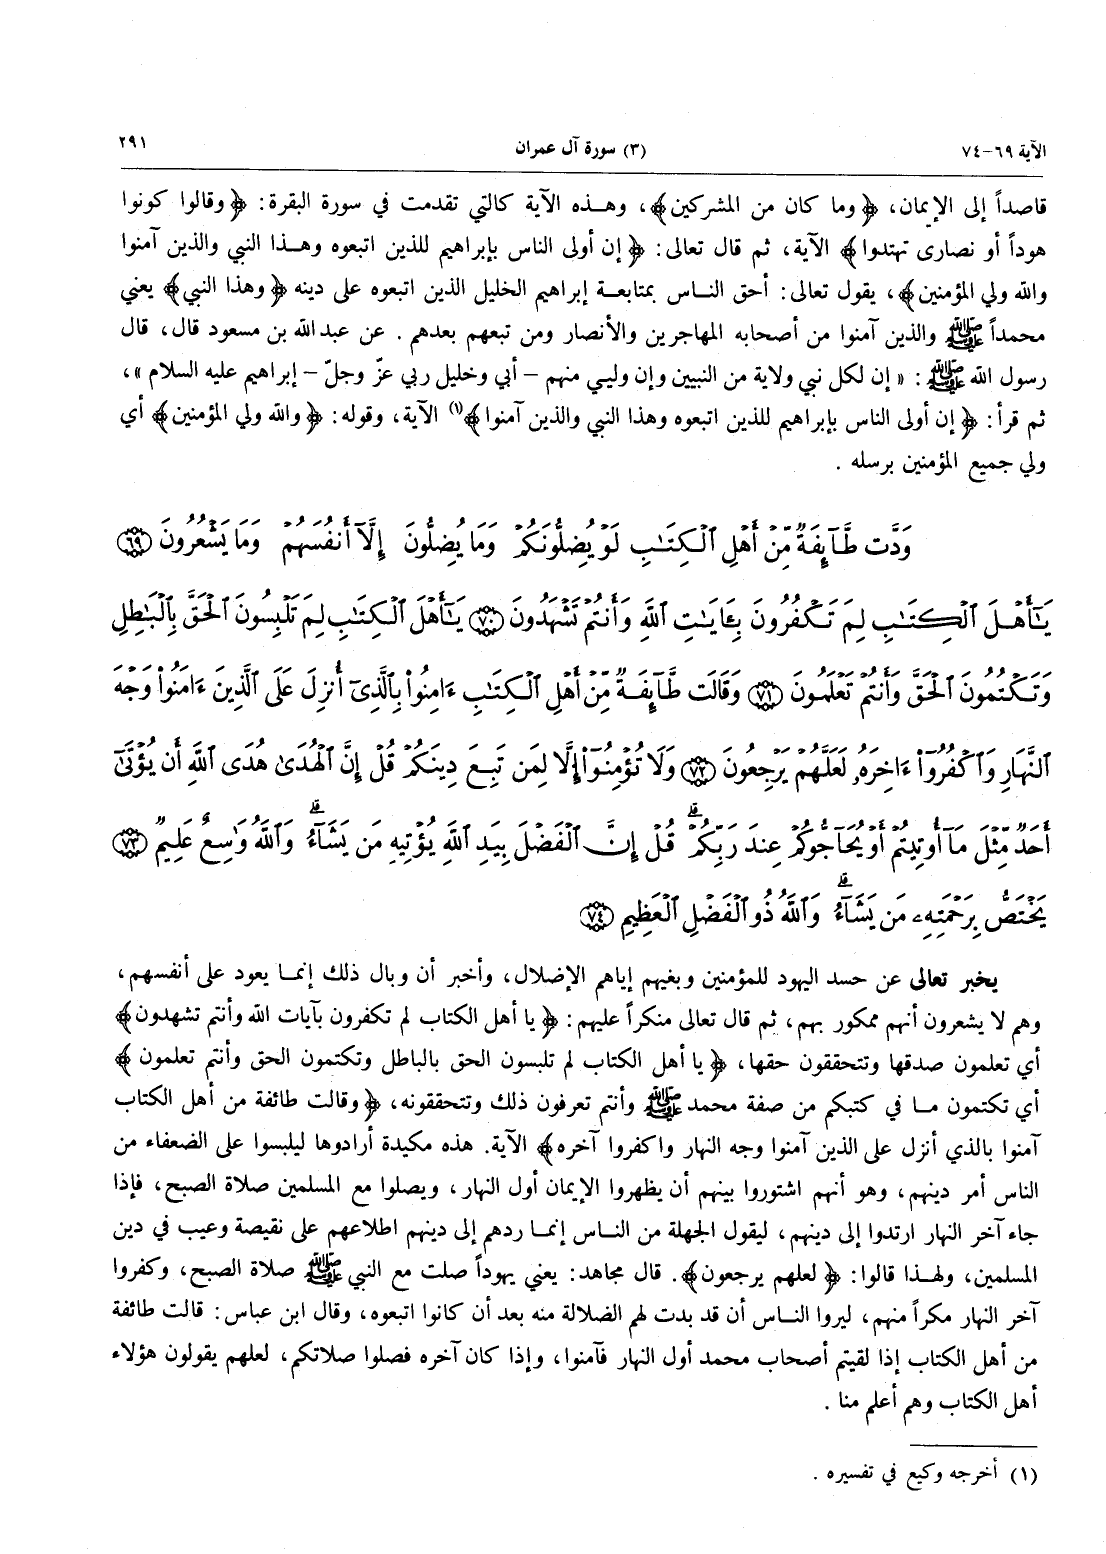 الآية ٦٩-٧٤ (٣) سورة آل عمران ٢٩١
قاصداً إلى الإيمان، ﴿وما كان من المشركين﴾، وهـذه الآية كالتي تقدمت في سورة البقرة: ﴿وقالوا كونوا
هوداً أو نصارى تهتدوا﴾ الآية، ثم قال تعالى: ﴿إن أولى الناس بإبراهيم للذين اتبعوه وهـذا النبي والذين آمنوا
والله ولي المؤمنين﴾، يقول تعالى: أحق النـاس بمتابعـة إبراهيم الخليل الذين اتبعوه على دينه ﴿وهذا النبي﴾ يعني
محمداً ﷺ والذين آمنوا من أصحابه المهاجرين والأنصار ومن تبعهم بعدهم . عن عبد الله بن مسعود قال، قال
رسول الله ﷺ : « إن لكل نبي ولاية من النبيين وإن وليـي منهم – أبي وخليل ربي عزّ وجلّ – إبراهيم عليه السلام »،
ثم قرأ: ﴿إن أولى الناس بإبراهيم للذين اتبعوه وهذا النبي والذين آمنوا﴾(١) الآية، وقوله: ﴿والله ولي المؤمنين﴾ أي
ولي جميع المؤمنين برسله .
وَدَّت طَّآئِفَةٌ مِّنْ أَهْلِ ٱلْكِتَٰبِ لَوْ يُضِلُّونَكُمْ وَمَا يُضِلُّونَ إِلَّآ أَنفُسَهُمْ وَمَا يَشْعُرُونَ ﴿٦٩﴾
يَٰٓأَهْلَ ٱلْكِتَٰبِ لِمَ تَكْفُرُونَ بِـَٔايَٰتِ ٱللَّهِ وَأَنتُمْ تَشْهَدُونَ ﴿٧٠﴾ يَٰٓأَهْلَ ٱلْكِتَٰبِ لِمَ تَلْبِسُونَ ٱلْحَقَّ بِٱلْبَٰطِلِ
وَتَكْتُمُونَ ٱلْحَقَّ وَأَنتُمْ تَعْلَمُونَ ﴿٧١﴾ وَقَالَت طَّآئِفَةٌ مِّنْ أَهْلِ ٱلْكِتَٰبِ ءَامِنُوا۟ بِٱلَّذِىٓ أُنزِلَ عَلَى ٱلَّذِينَ ءَامَنُوا۟ وَجْهَ
ٱلنَّهَارِ وَٱكْفُرُوٓا۟ ءَاخِرَهُۥ لَعَلَّهُمْ يَرْجِعُونَ ﴿٧٢﴾ وَلَا تُؤْمِنُوٓا۟ إِلَّا لِمَن تَبِعَ دِينَكُمْ قُلْ إِنَّ ٱلْهُدَىٰ هُدَى ٱللَّهِ أَن يُؤْتَىٰٓ
أَحَدٌ مِّثْلَ مَآ أُوتِيتُمْ أَوْ يُحَآجُّوكُمْ عِندَ رَبِّكُمْ ۗ قُلْ إِنَّ ٱلْفَضْلَ بِيَدِ ٱللَّهِ يُؤْتِيهِ مَن يَشَآءُ ۗ وَٱللَّهُ وَٰسِعٌ عَلِيمٌ ﴿٧٣﴾
يَخْتَصُّ بِرَحْمَتِهِۦ مَن يَشَآءُ ۗ وَٱللَّهُ ذُو ٱلْفَضْلِ ٱلْعَظِيمِ ﴿٧٤﴾
يخبر تعالى عن حسد اليهود للمؤمنين وبغيهم إياهم الإضلال، وأخبر أن وبال ذلك إنمـا يعود على أنفسهم،
وهم لا يشعرون أنهم ممكور بهم، ثم قال تعالى منكراً عليهم: ﴿يا أهل الكتاب لم تكفرون بآيات الله وأنتم تشهدون﴾
أي تعلمون صدقها وتتحققون حقها، ﴿يا أهل الكتاب لم تلبسون الحق بالباطل وتكتمون الحق وأنتم تعلمون﴾
أي تكتمون مـا في كتبكم من صفة محمد ﷺ وأنتم تعرفون ذلك وتتحققونه، ﴿وقالت طائفة من أهل الكتاب
آمنوا بالذي أنزل على الذين آمنوا وجه النهار واكفروا آخره﴾ الآية. هذه مكيدة أرادوها ليلبسوا على الضعفاء من
الناس أمر دينهم، وهو أنهم اشتوروا بينهم أن يظهروا الإيمان أول النهار، ويصلوا مع المسلمين صلاة الصبح، فإذا
جاء آخر النهار ارتدوا إلى دينهم، ليقول الجهلة من النـاس إنمـا ردهم إلى دينهم اطلاعهم على نقيصة وعيب في دين
المسلمين، ولهـذا قالوا: ﴿لعلهم يرجعون﴾. قال مجاهد: يعني يهوداً صلت مع النبي ﷺ صلاة الصبح، وكفروا
آخر النهار مكراً منهم، ليروا النـاس أن قد بدت لهم الضلالة منه بعد أن كانوا اتبعوه، وقال ابن عباس: قالت طائفة
من أهل الكتاب إذا لقيتم أصحاب محمد أول النهار فآمنوا، وإذا كان آخره فصلوا صلاتكم، لعلهم يقولون هؤلاء
أهل الكتاب وهم أعلم منا .
(١) أخرجه وكيع في تفسيره .